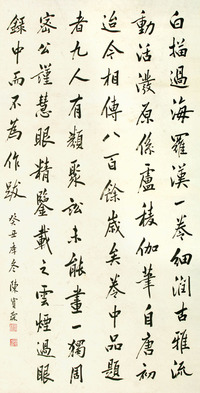 白描過海羅漢一卷細潤古雅流
動活潑原係盧稜伽筆自唐初
迨今相傳八百餘歲矣卷中品題
者九人有類聚訟未能畫一獨周
密公謹慧眼精鑒載之雲煙過眼
錄中而不為作跋
癸丑季冬 陳寶琛